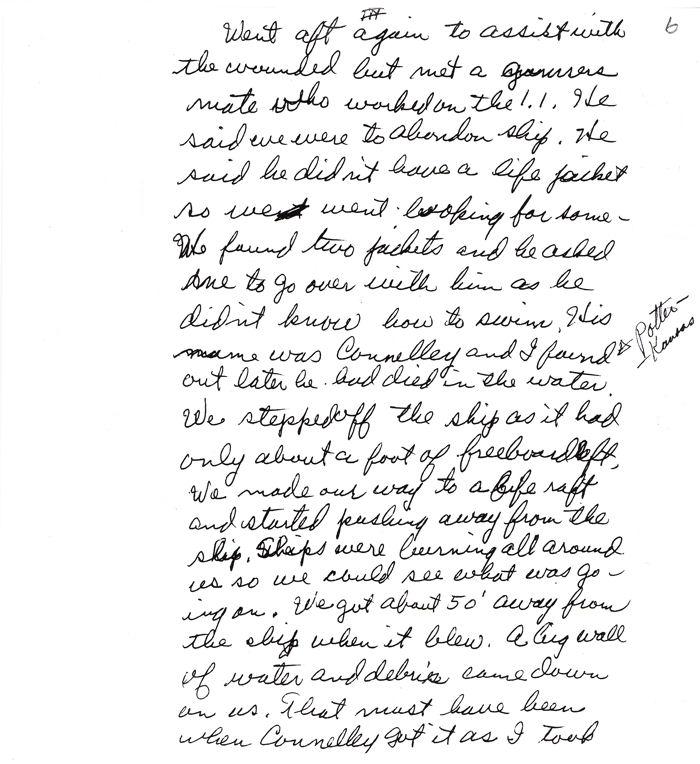 III
6
Went aft again to assist with
the wounded but met a gunners
mate who worked on the 1.1. He
said we were to abandon ship. He
said he didn't have a life jacket
so we went looking for some-
We found two jackets and he asked
me to go over with him as he
didn't know how to swim. His
name was Connelley and I found
Potter-
Kansas
out later he had died in the water.
We stepped off the ship as it had
only about a foot of freeboard left.
We made our way to a life raft
and started pushing away from the
ship. Ships were burning all around
us so we could see what was go-
ing on. We got about 50' away from
the ship when it blew. A big wall
of water and debris came down
on us. That must have been
when Connelley got it as I took